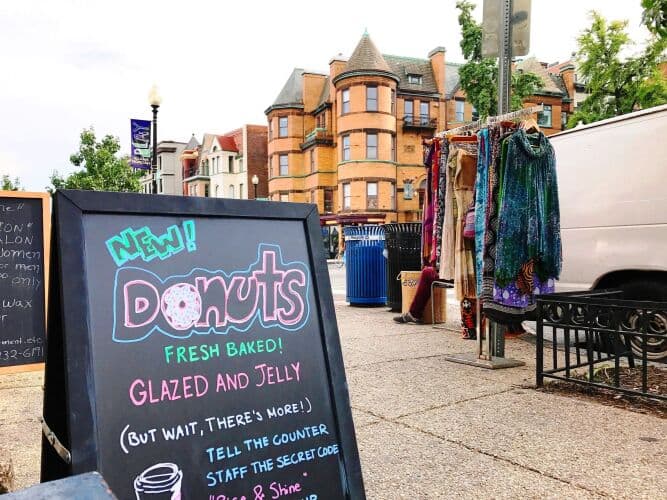 NEW!
DONUTS
FRESH BAKED!
GLAZED AND JELLY
(BUT WAIT, THERE'S MORE!)
TELL THE COUNTER
STAFF THE SECRET CODE
"Rise & Shine"
ALON
women
or men
wax
r
ment.etc
232-6191